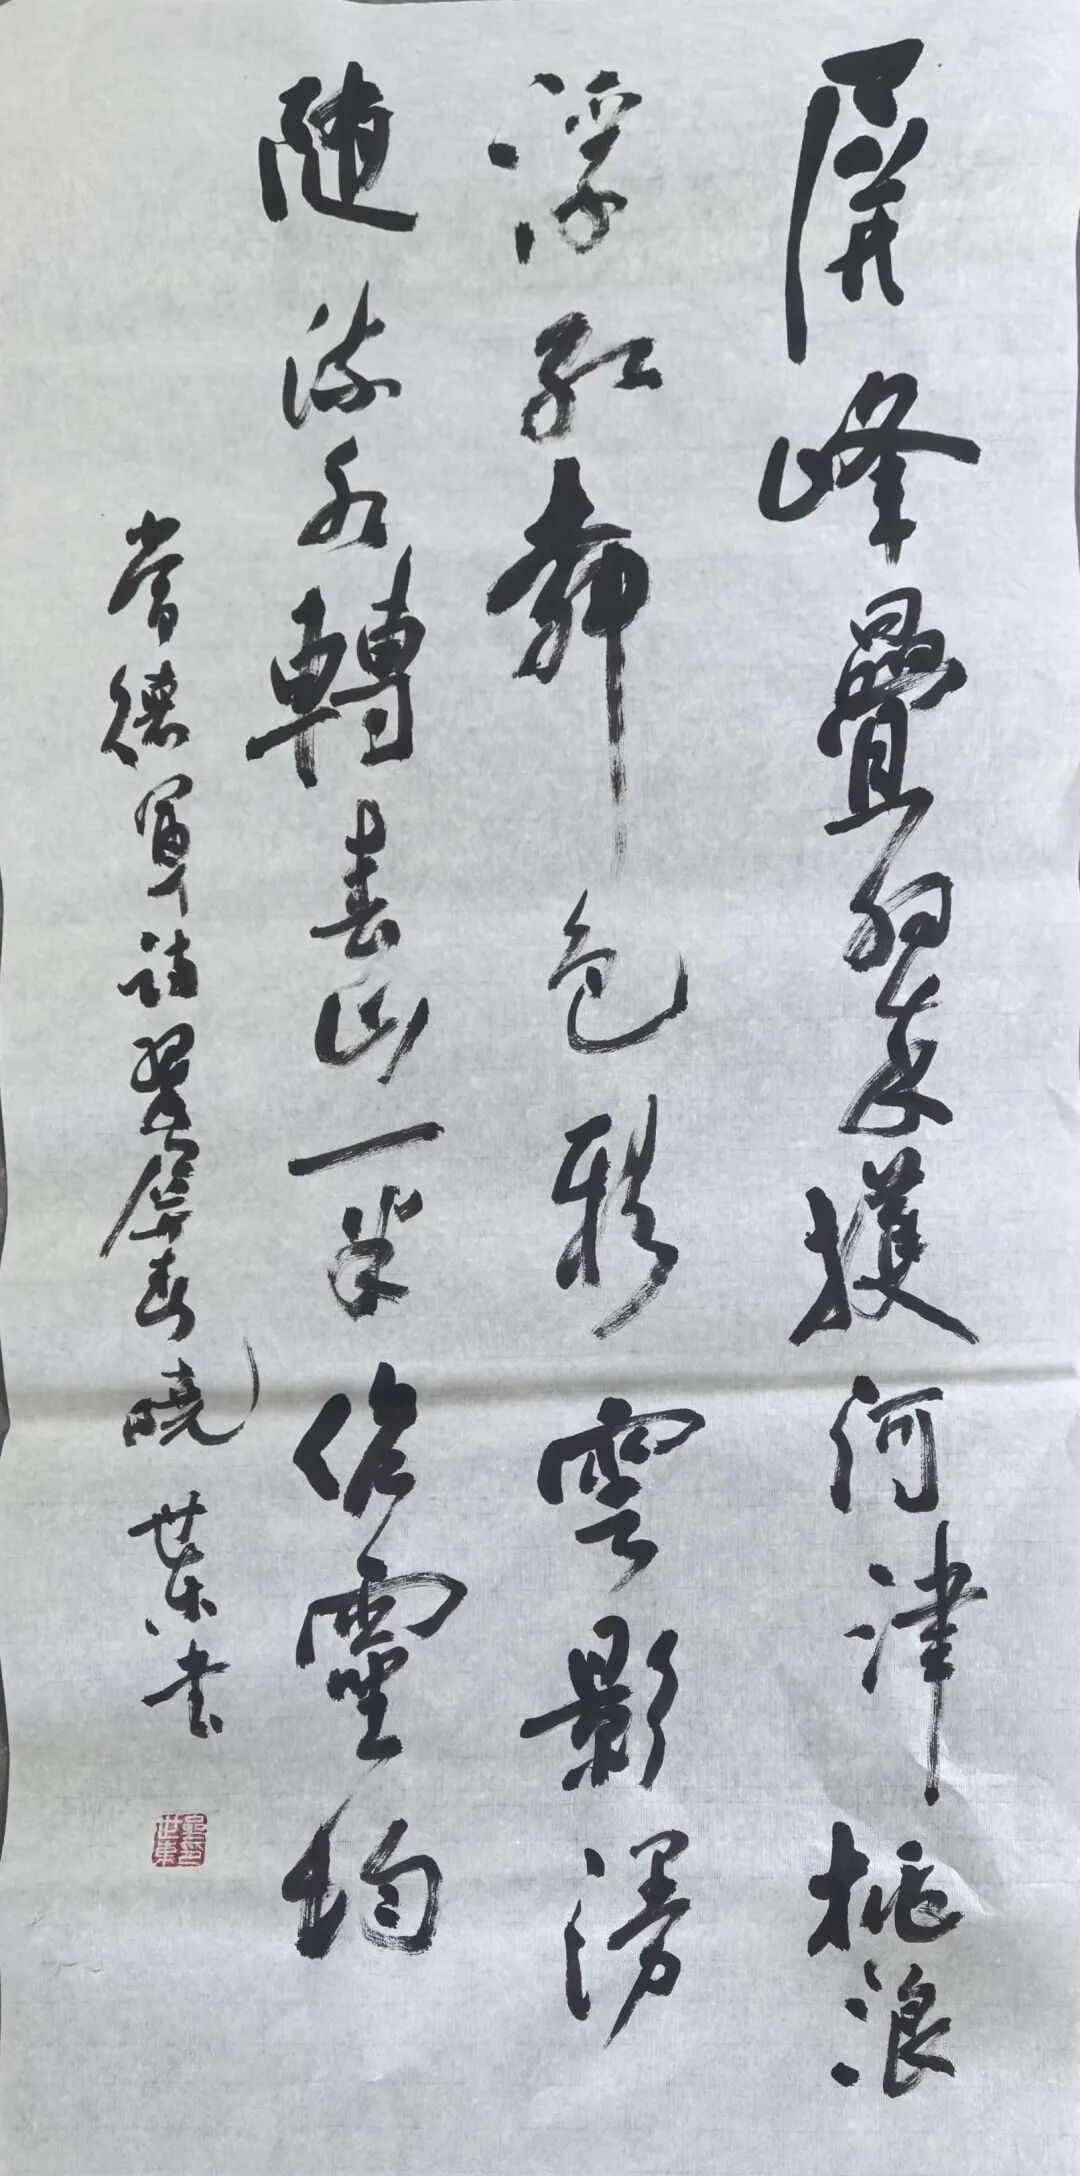 屏峰疊翠護河津桃浪
浮紅舞色雲影漫
隨流水轉春山一半作靈均
常德軍詩翠屏春曉 世东書
世東